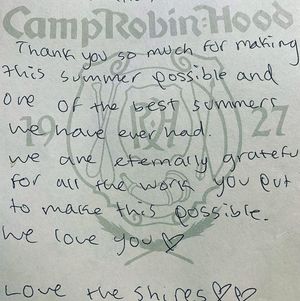 Camp Robin Hood
Thank you so much for making
this summer possible and
one of the best summers
19 27
we have ever had.
we are eternally grateful
for all the work you put
to make this possible.
we love you ♡
Love the shires ♡♡